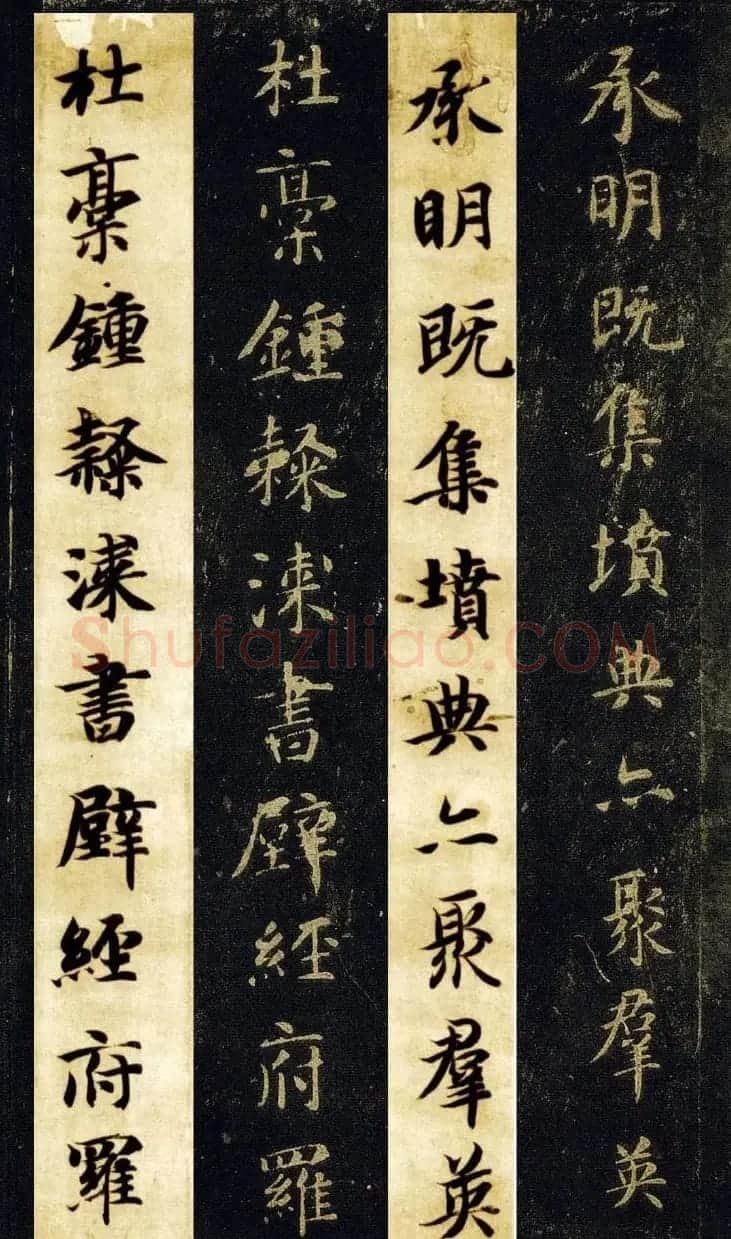 承明既集墳典亦聚羣英
承明既集墳典亦聚羣英
杜稾鍾隸漆書壁經府羅
杜稾鍾隸漆書壁經府羅
Shufaziliao.COM